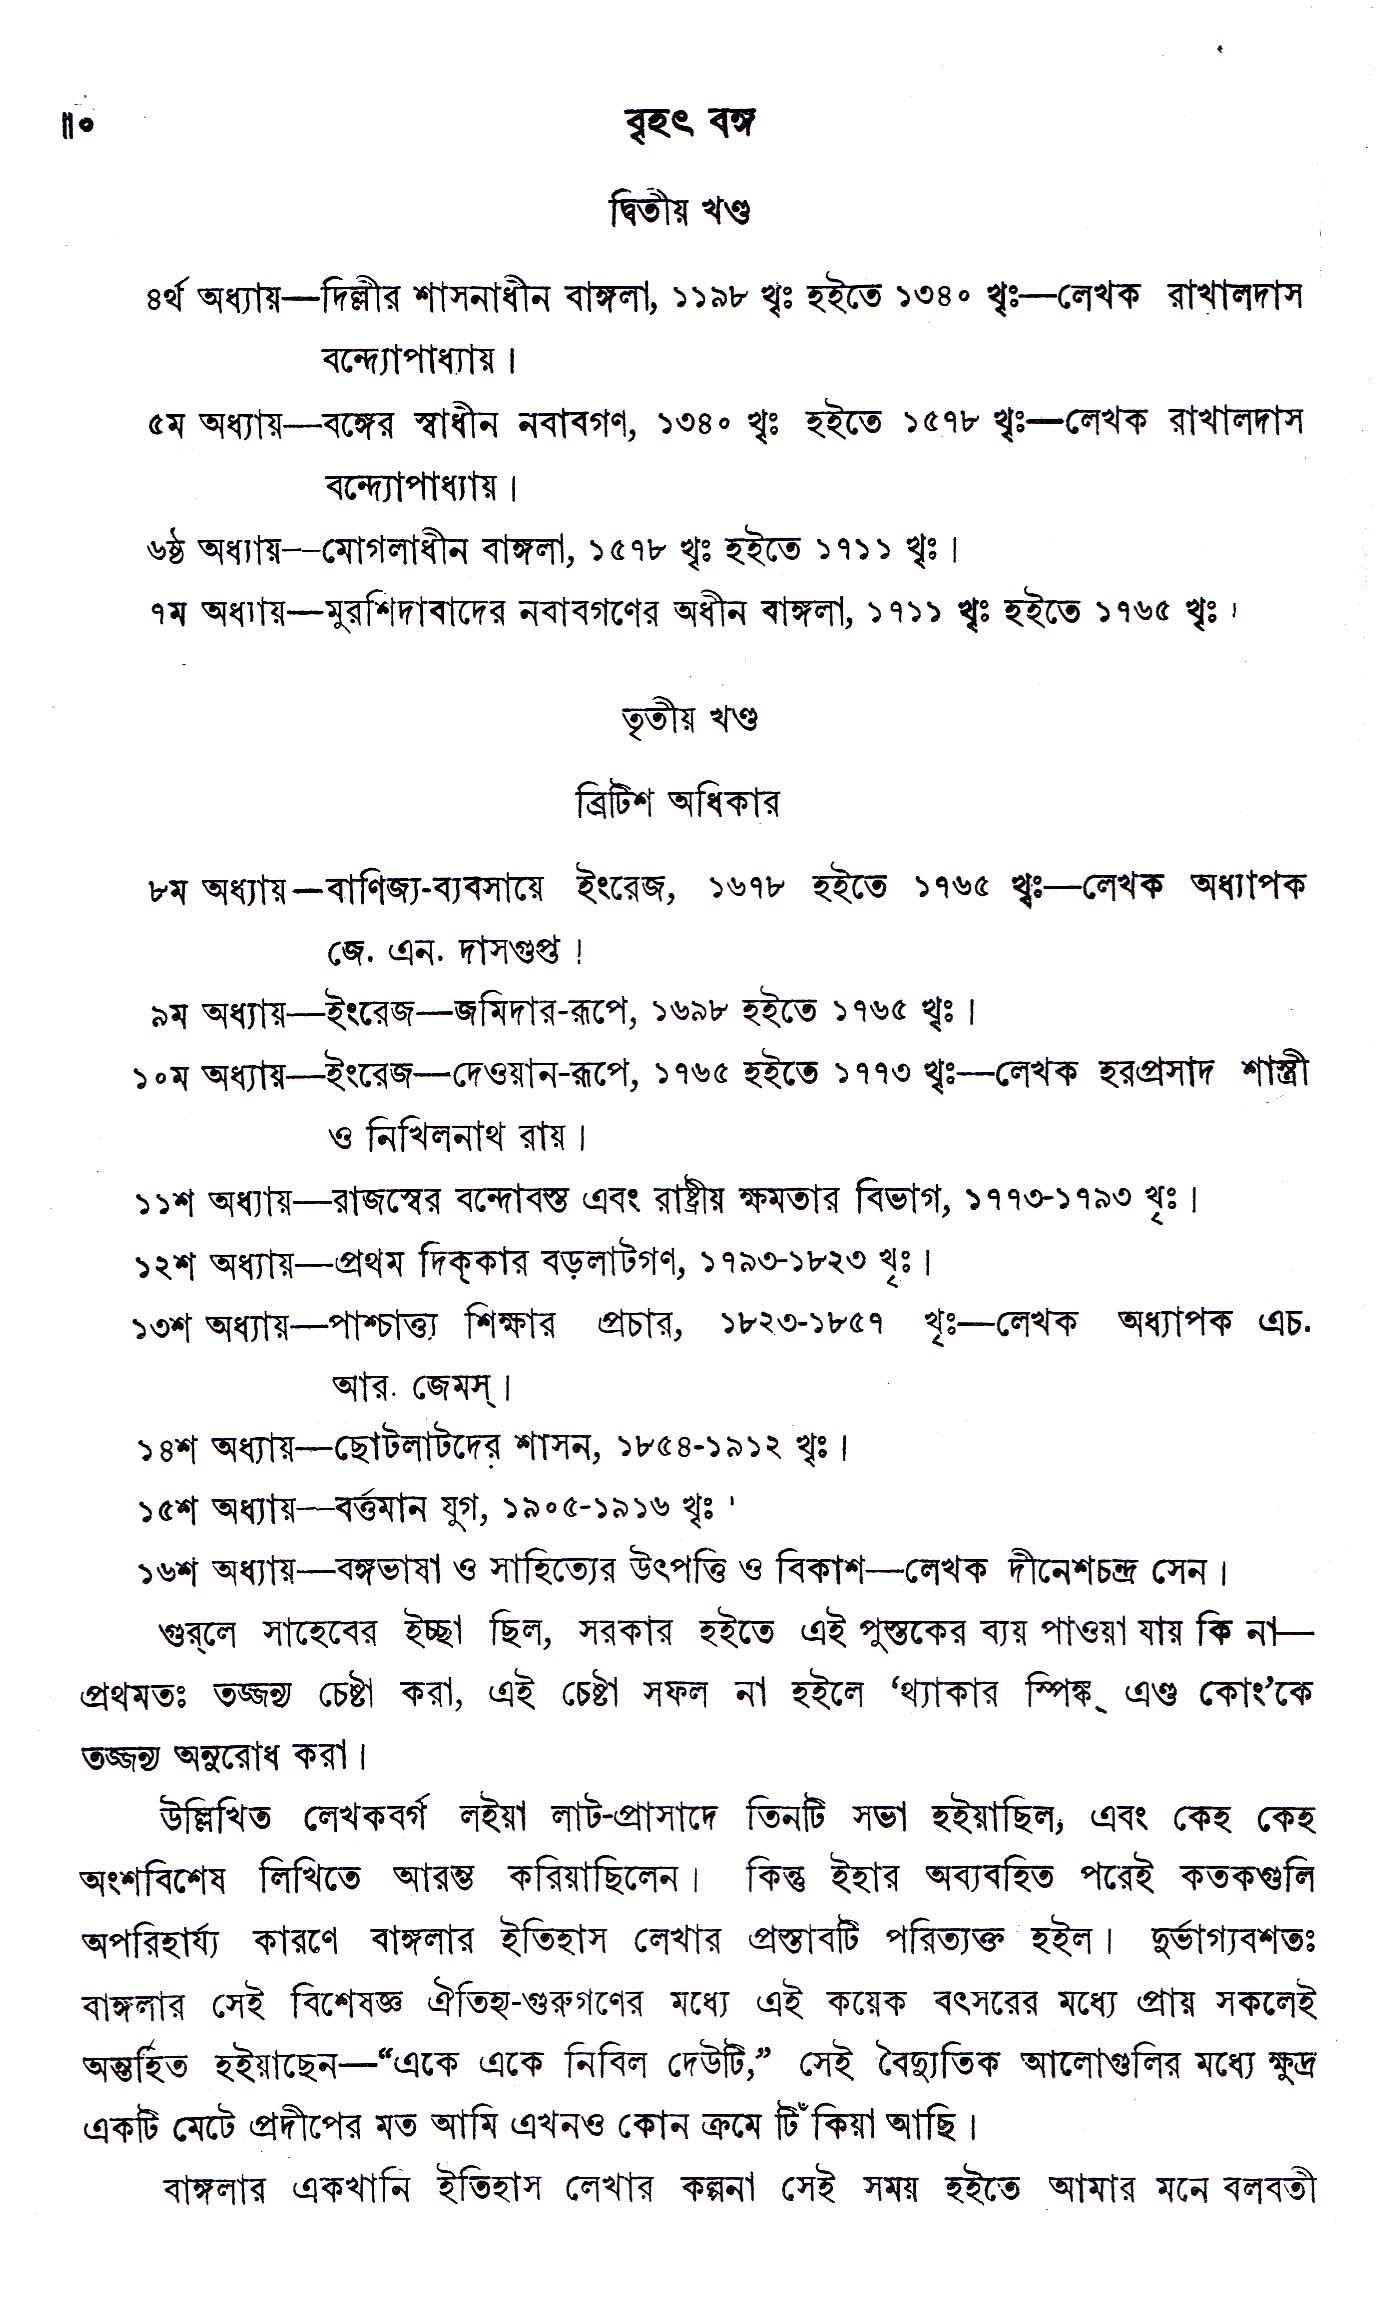 ৷৷৹
বৃহৎ বঙ্গ
দ্বিতীয় খণ্ড
৪র্থ অধ্যায়—দিল্লীর শাসনাধীন বাঙ্গলা, ১১৯৮ খৃঃ হইতে ১৩৪০ খৃঃ—লেখক রাখালদাস
বন্দ্যোপাধ্যায়।
৫ম অধ্যায়—বঙ্গের স্বাধীন নবাবগণ, ১৩৪০ খৃঃ হইতে ১৫৭৮ খৃঃ—লেখক রাখালদাস
বন্দ্যোপাধ্যায়।
৬ষ্ঠ অধ্যায়—মোগলাধীন বাঙ্গলা, ১৫৭৮ খৃঃ হইতে ১৭১১ খৃঃ।
৭ম অধ্যায়—মুরশিদাবাদের নবাবগণের অধীন বাঙ্গলা, ১৭১১ খৃঃ হইতে ১৭৬৫ খৃঃ।
তৃতীয় খণ্ড
ব্রিটিশ অধিকার
৮ম অধ্যায়—বাণিজ্য-ব্যবসায়ে ইংরেজ, ১৬৭৮ হইতে ১৭৬৫ খৃঃ—লেখক অধ্যাপক
জে. এন. দাসগুপ্ত।
৯ম অধ্যায়—ইংরেজ—জমিদার-রূপে, ১৬৯৮ হইতে ১৭৬৫ খৃঃ।
১০ম অধ্যায়—ইংরেজ—দেওয়ান-রূপে, ১৭৬৫ হইতে ১৭৭৩ খৃঃ—লেখক হরপ্রসাদ শাস্ত্রী
ও নিখিলনাথ রায়।
১১শ অধ্যায়—রাজস্বের বন্দোবস্ত এবং রাষ্ট্রীয় ক্ষমতার বিভাগ, ১৭৭৩-১৭৯৩ খৃঃ।
১২শ অধ্যায়—প্রথম দিক্‌কার বড়লাটগণ, ১৭৯৩-১৮২৩ খৃঃ।
১৩শ অধ্যায়—পাশ্চাত্ত্য শিক্ষার প্রচার, ১৮২৩-১৮৫৭ খৃঃ—লেখক অধ্যাপক এচ.
আর. জেমস্।
১৪শ অধ্যায়—ছোটলাটদের শাসন, ১৮৫৪-১৯১২ খৃঃ।
১৫শ অধ্যায়—বর্ত্তমান যুগ, ১৯০৫-১৯১৬ খৃঃ।
১৬শ অধ্যায়—বঙ্গভাষা ও সাহিত্যের উৎপত্তি ও বিকাশ—লেখক দীনেশচন্দ্র সেন।
গুর্‌লে সাহেবের ইচ্ছা ছিল, সরকার হইতে এই পুস্তকের ব্যয় পাওয়া যায় কি না—
প্রথমতঃ তজ্জন্য চেষ্টা করা, এই চেষ্টা সফল না হইলে ‘থ্যাকার স্পিঙ্ক্ এণ্ড কোং’কে
তজ্জন্য অনুরোধ করা।
উল্লিখিত লেখকবর্গ লইয়া লাট-প্রাসাদে তিনটি সভা হইয়াছিল, এবং কেহ কেহ
অংশবিশেষ লিখিতে আরম্ভ করিয়াছিলেন। কিন্তু ইহার অব্যবহিত পরেই কতকগুলি
অপরিহার্য্য কারণে বাঙ্গলার ইতিহাস লেখার প্রস্তাবটি পরিত্যক্ত হইল। দুর্ভাগ্যবশতঃ
বাঙ্গলার সেই বিশেষজ্ঞ ঐতিহ্য-গুরুগণের মধ্যে এই কয়েক বৎসরের মধ্যে প্রায় সকলেই
অন্তর্হিত হইয়াছেন—“একে একে নিবিল দেউটি,” সেই বৈদ্যুতিক আলোগুলির মধ্যে ক্ষুদ্র
একটি মেটে প্রদীপের মত আমি এখনও কোন ক্রমে টিঁকিয়া আছি।
বাঙ্গলার একখানি ইতিহাস লেখার কল্পনা সেই সময় হইতে আমার মনে বলবতী